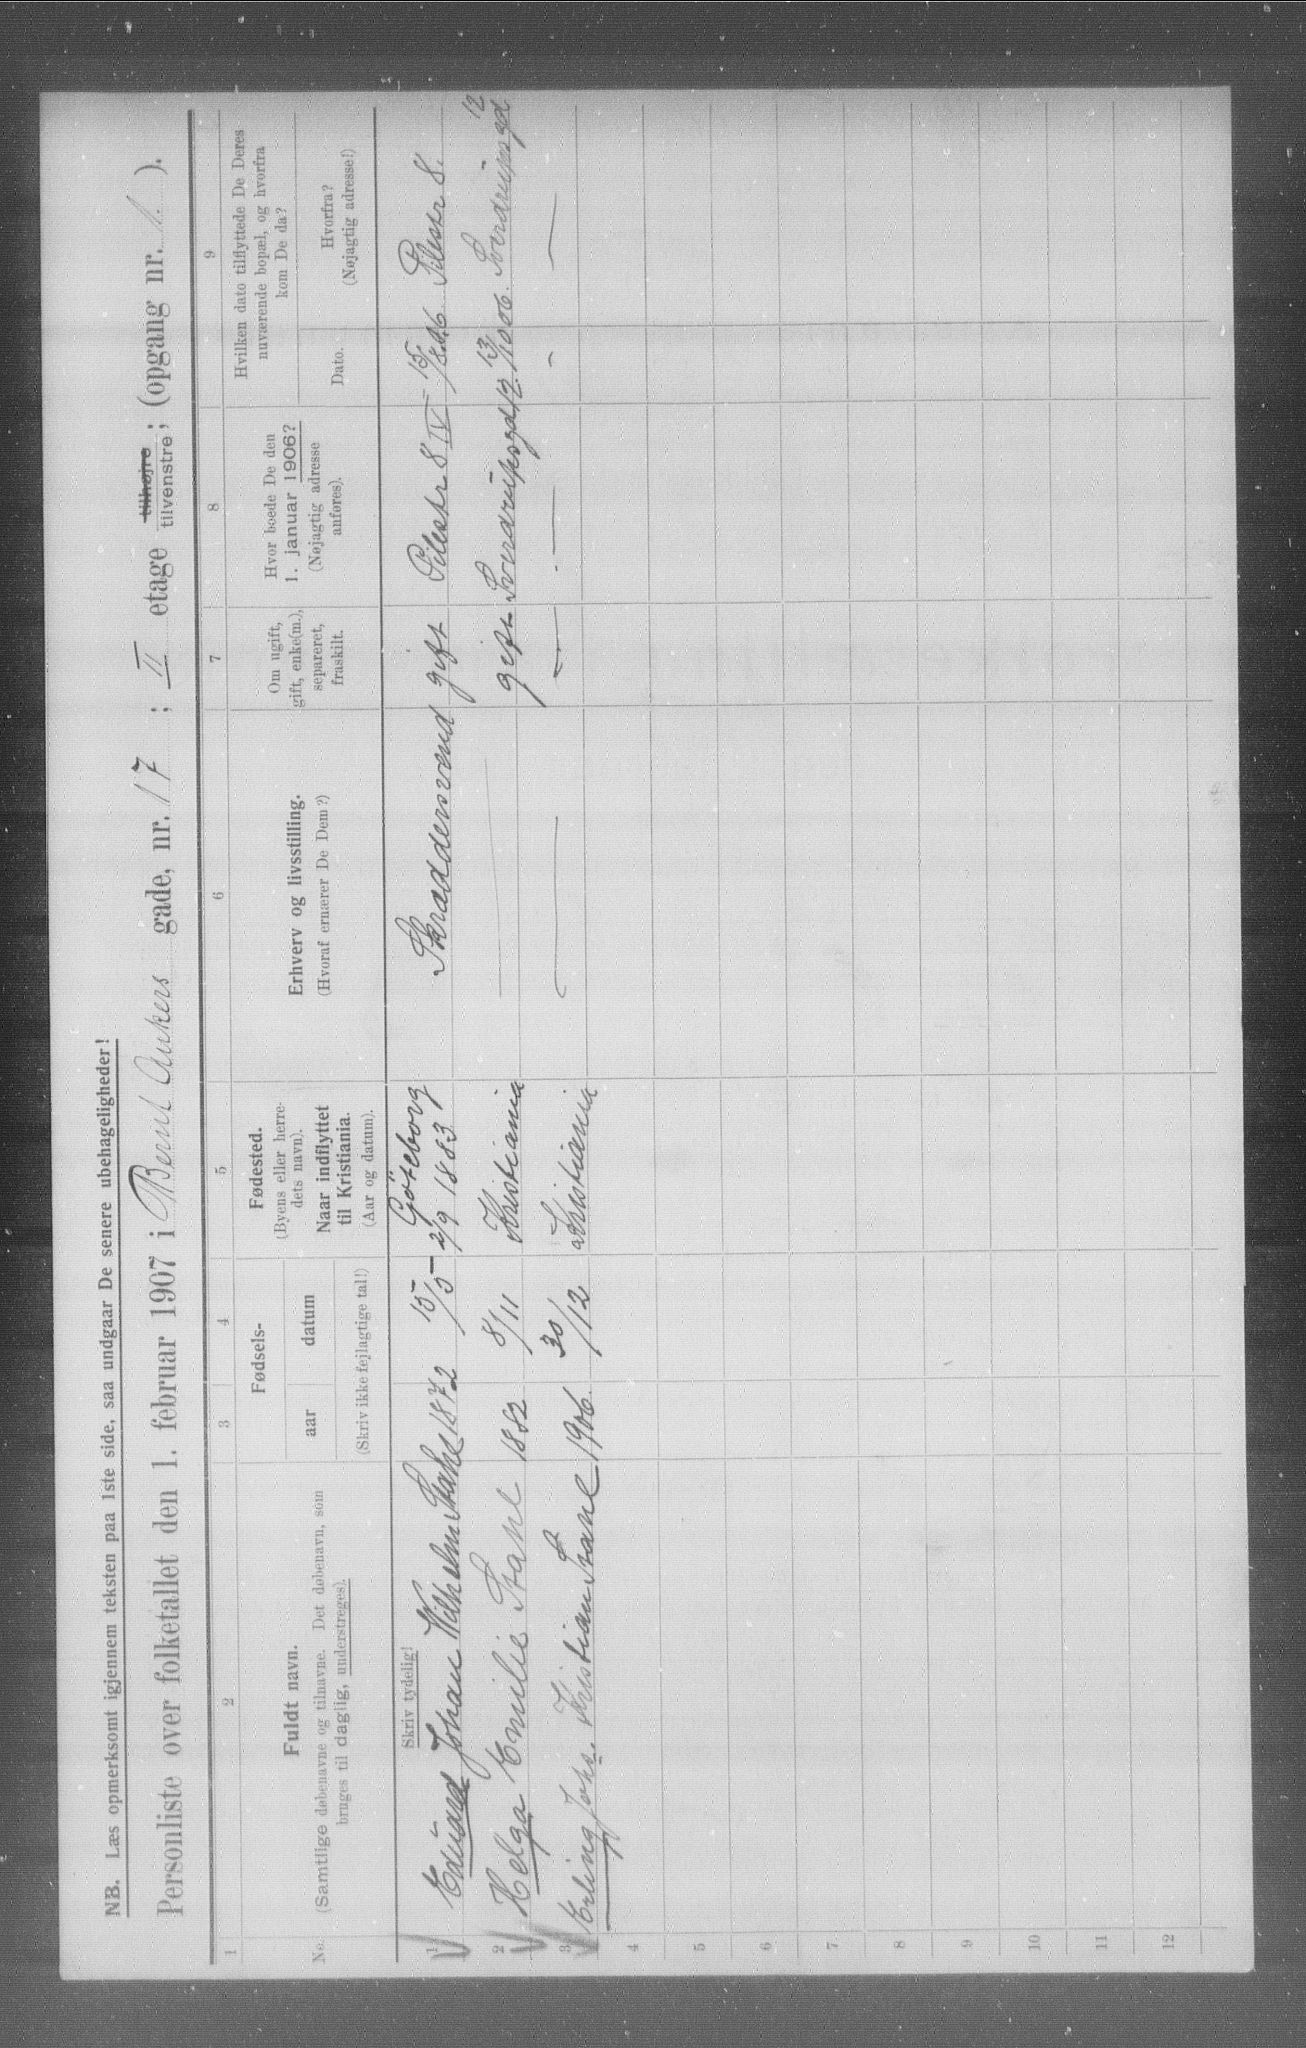 NB. Læs opmerksomt igjennem teksten paa 1ste side, saa undgaar De senere ubehageligheder!
Personliste over folketallet den 1. februar 1907 i Bernt Ankers gade, nr. 17 ; II etage tilhøjre ; (opgang nr. 1 ).
tilvenstre;
1 2 3 4 5 6 7 8 9
No.
Fuldt navn.
(Samtlige døbenavne og tilnavne. Det døbenavn, som
bruges til daglig, understreges).
Fødsels-
aar datum
(Skriv ikke fejlagtige tal!)
Fødested.
(Byens eller herre-
dets navn).
Naar indflyttet
til Kristiania.
(Aar og datum).
Erhverv og livsstilling.
(Hvoraf ernærer De Dem?)
Om ugift,
gift, enke(m.),
separeret,
fraskilt.
Hvor boede De den
1. januar 1906?
(Nøjagtig adresse
anføres).
Hvilken dato tilflyttede De Deres
nuværende bopæl, og hvorfra
kom De da?
Dato.
Hvorfra?
(Nøjagtig adresse!)
Skriv tydelig!
1 Eduard Johan Wilhelm Stahl 1872 15/5 Göteborg 2/9 1883 Skræddersvend gift Pilestr 8 IV 15/8 06 Pilestr 8.
2 Helga Emilie Stahl 1882 8/11 Kristiania — gift Sverdrupsgd 12 13/10 06. Sverdrupsgd 12
3 Erling Johs. Kristian Stahl 1906. 30/12 Kristiania — — — — —
4
5
6
7
8
9
10
11
12